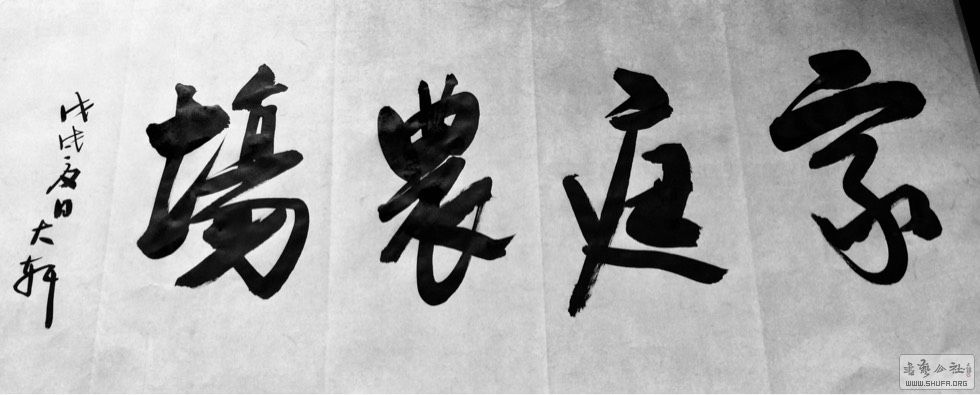 家庭農場
戊戌夏日大軒
書藝公社
WWW.SHUFA.ORG